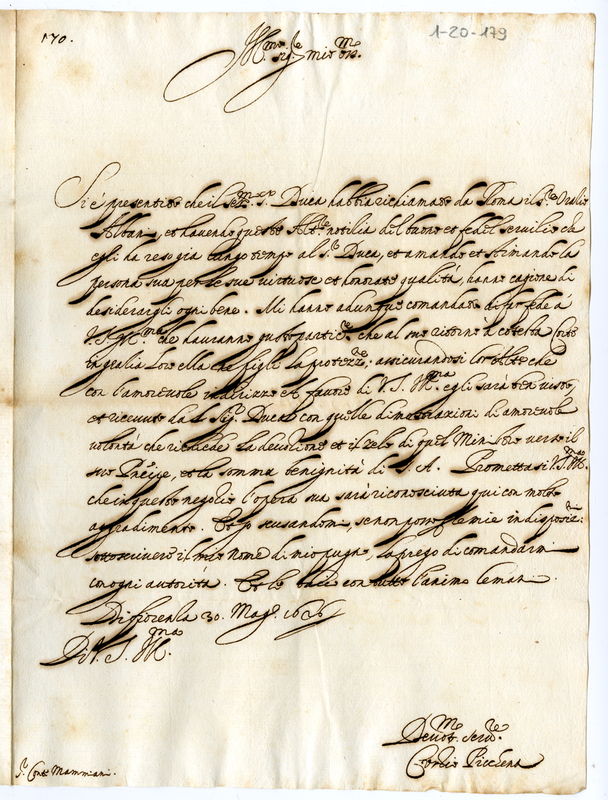 170.
1-20-179
Ill.mo sig.re mio oss.mo
Si è presentito che il Ser.mo S.r Duca habbia richiamato da Roma il S.r Oratio
Albani, et havendo queste Alt.ze notitia del buono et fedel servitio che
egli ha reso già lungo tempo al S.r Duca, et amando et stimando la
persona sua per le sue virtuose et honorate qualità, hanno cagione di
desiderargli ogni bene. Mi hanno adunque comandato di far fede à
V. S. Ill.ma che hauranno gusto partic.re che al suo ritorno à cotesta Corte
in gratia Loro ella che pigli la protezz.ne, assicurandosi lor Alt.e che
con l'amorevole indirizzo et favore di V. S. Ill.ma egli sarà ben visto,
et ricevuto da S. Sig.r Duca con quelle dimostrazioni di amorevole
volontà che richiede la devotione et il zelo di quel Ministro verso il
suo Principe, et la somma benignità di S. A. Promettasi V. S. Ill.ma
che in questo negotio l'opera sua sarà riconosciuta qui con molto
aggradimento. Et scusandomi, se non posso per le mie indisposiz.ni
sottoscrivere il mio nome di mio pugno, la prego di comandarmi
con ogni autorità. Et le bacio con tutto l'animo le mani.
Di Fiorenza 30. Mag.o 16
Di V. S. Ill.ma
Devot.mo Serv.re
Curtio Picchena
S.r Conte Mammiani.